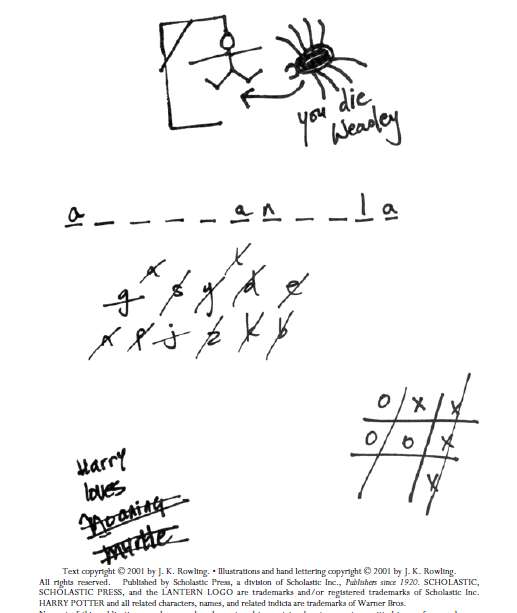 you die
Weasley
a _ _ _ _ a n _ _ l a
x t
g s y d e
x p j z k b
O X X
O O X
X
Harry
loves
Moaning
Myrtle
Text copyright © 2001 by J. K. Rowling. • Illustrations and hand lettering copyright © 2001 by J. K. Rowling.
All rights reserved. Published by Scholastic Press, a division of Scholastic Inc., Publishers since 1920. SCHOLASTIC,
SCHOLASTIC PRESS, and the LANTERN LOGO are trademarks and/or registered trademarks of Scholastic Inc.
HARRY POTTER and all related characters, names, and related indicia are trademarks of Warner Bros.